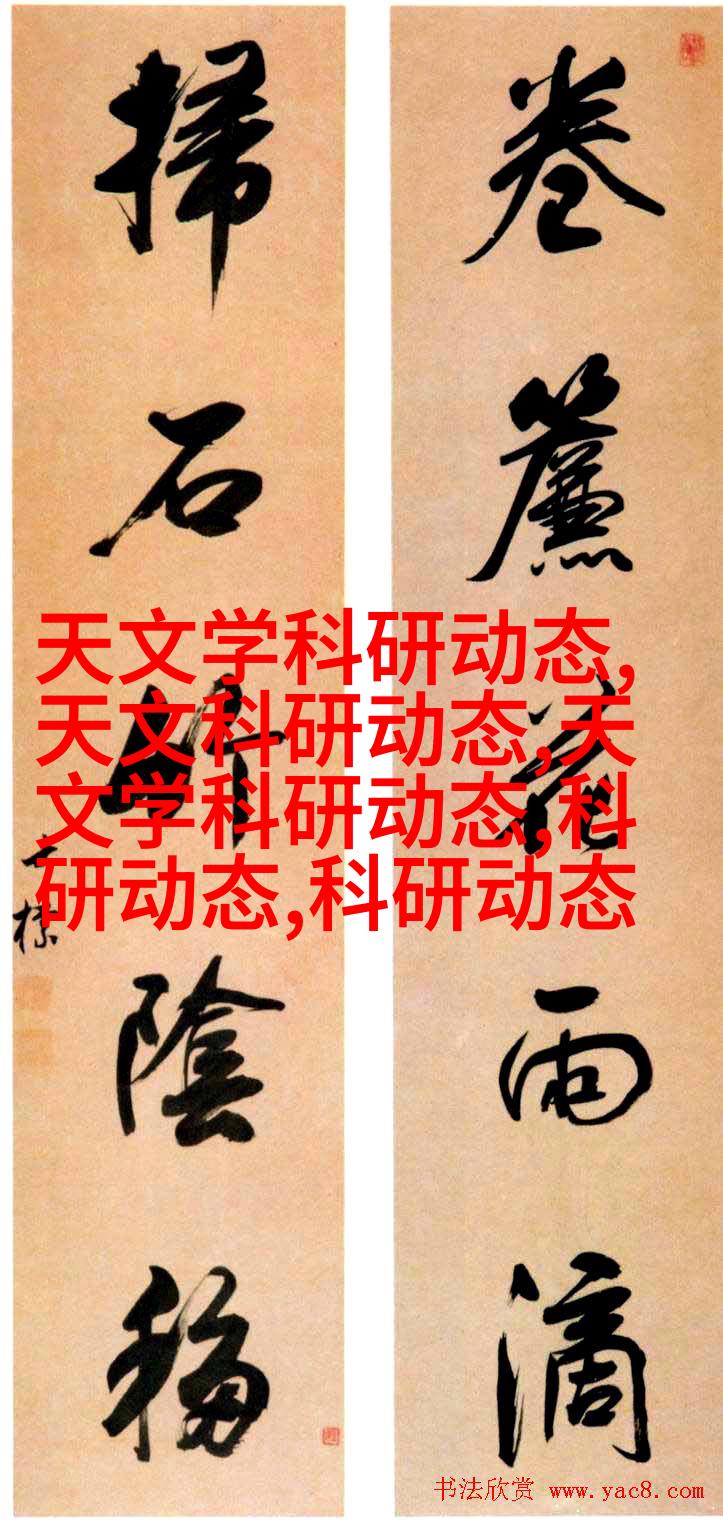 卷簾花雨滴
掃石竹陰移
士標
天文学科研动态,
天文科研动态,天
文学科研动态,科
研动态,科研动态
书法欣赏 www.yac8.com